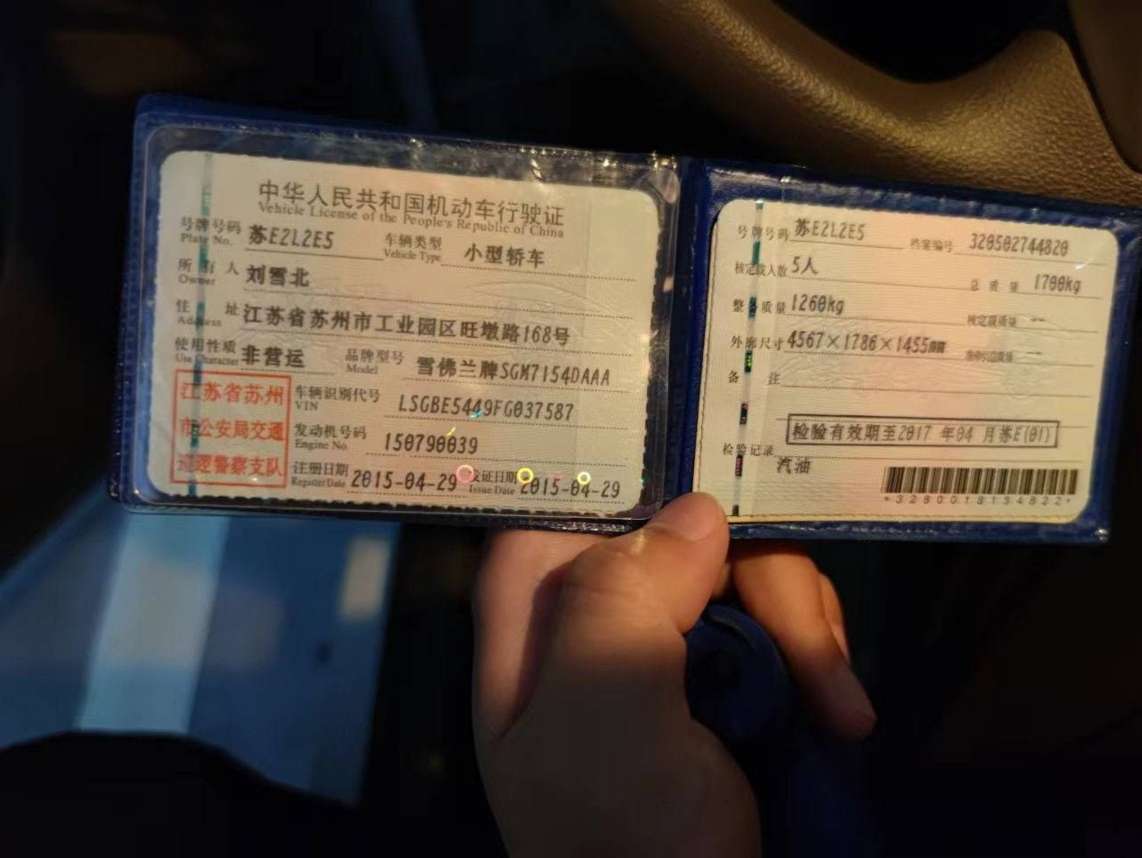 中华人民共和国机动车行驶证
Vehicle License of the People's Republic of China
号牌号码 苏E2L2E5 车辆类型 小型轿车
Plate No. Vehicle Type
所有人 刘雪北
Owner
住址 江苏省苏州市工业园区旺墩路168号
Address
使用性质 非营运 品牌型号 雪佛兰牌SGM7154DAAA
Use Character Model
江苏省苏州
市公安局交通
巡理警察支队
车辆识别代号 LSGBE5449FG037587
VIN
发动机号码 150790039
Engine No.
注册日期 2015-04-29 发证日期 2015-04-29
Register Date Issue Date
号牌号码 苏E2L2E5 档案编号 320502744820
核定载人数 5人 总质量 1700kg
整备质量 1260kg 核定载质量 --
外廓尺寸 4567×1786×1455mm 准牵引总质量 --
备注
检验有效期至2017 年04 月苏E(01)
检验记录
汽油
*3280018154822*